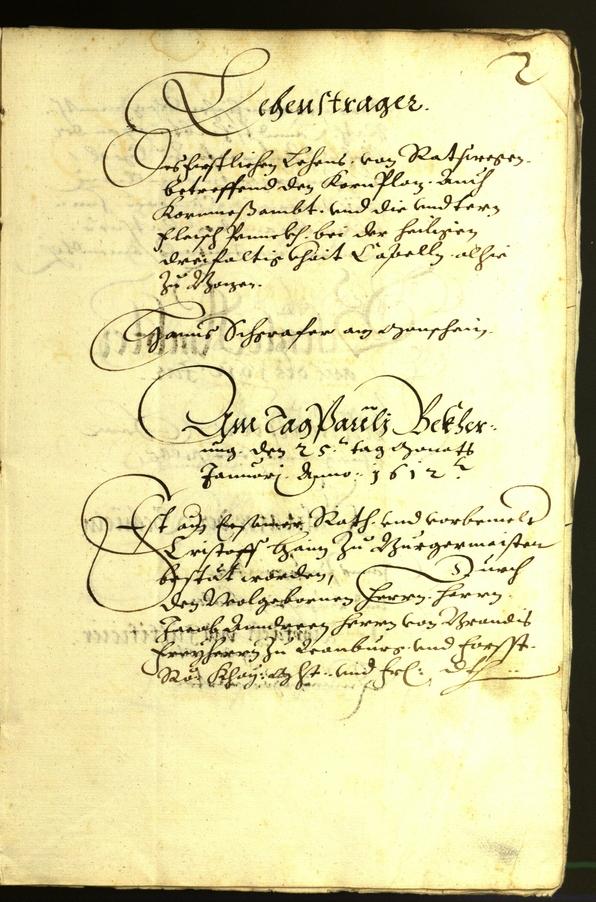 2
Lehenstrager.
Des fürstlichen Lehens. von Rathswegen.
betreffend den KornPlaz. auch
Kornmeßambt. vnd die vndtern
fleisch Pennckh. bei der heiligen
dreifaltigkhait Capelln. alhie
zu Bozen.
Hanns Schgrafer am
Am Tag Pauli Bekher-
ung. den 25.ᵗ tag Monats
Januarj. Anno. 1612.
Ist ain Ersamer Rath. vnd vorbemelt
Cristoff Hann zu Burgermaister
bestät worden, Durch
den Wolgebornen Herrn. Herrn.
Jacob Anndreen Herrn von Brandis
Freyherrn zu Leonburg. vnd Forsst.
Rö: Khay: Mht. vnd Frl: Dht